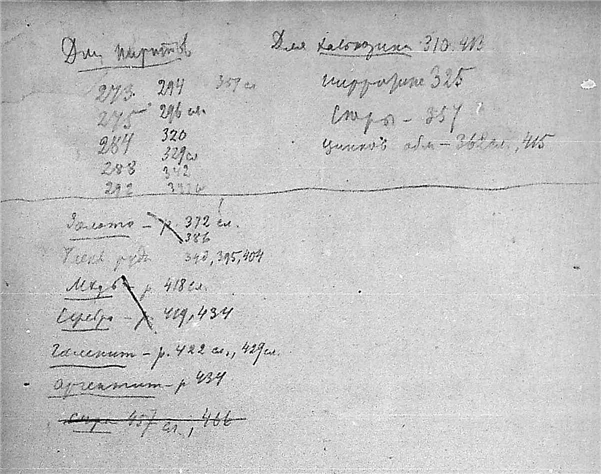 Для пиритов
273 294 357 сл
275 296 сл.
284 320
288 329 сл
292 342
Для халькозина 310. 413
пирротине 325
Серы – 357
цинков. обм – 362 сл., 415
Золото – р. 372 сл.
386
руды 390, 395, 404
Мѣдь – р. 418 сл.
Серебро – р. 419, 434
Галенит – р. 422 сл., 429 сл.
Аргентит – р 434
Сера 457 сл., 466